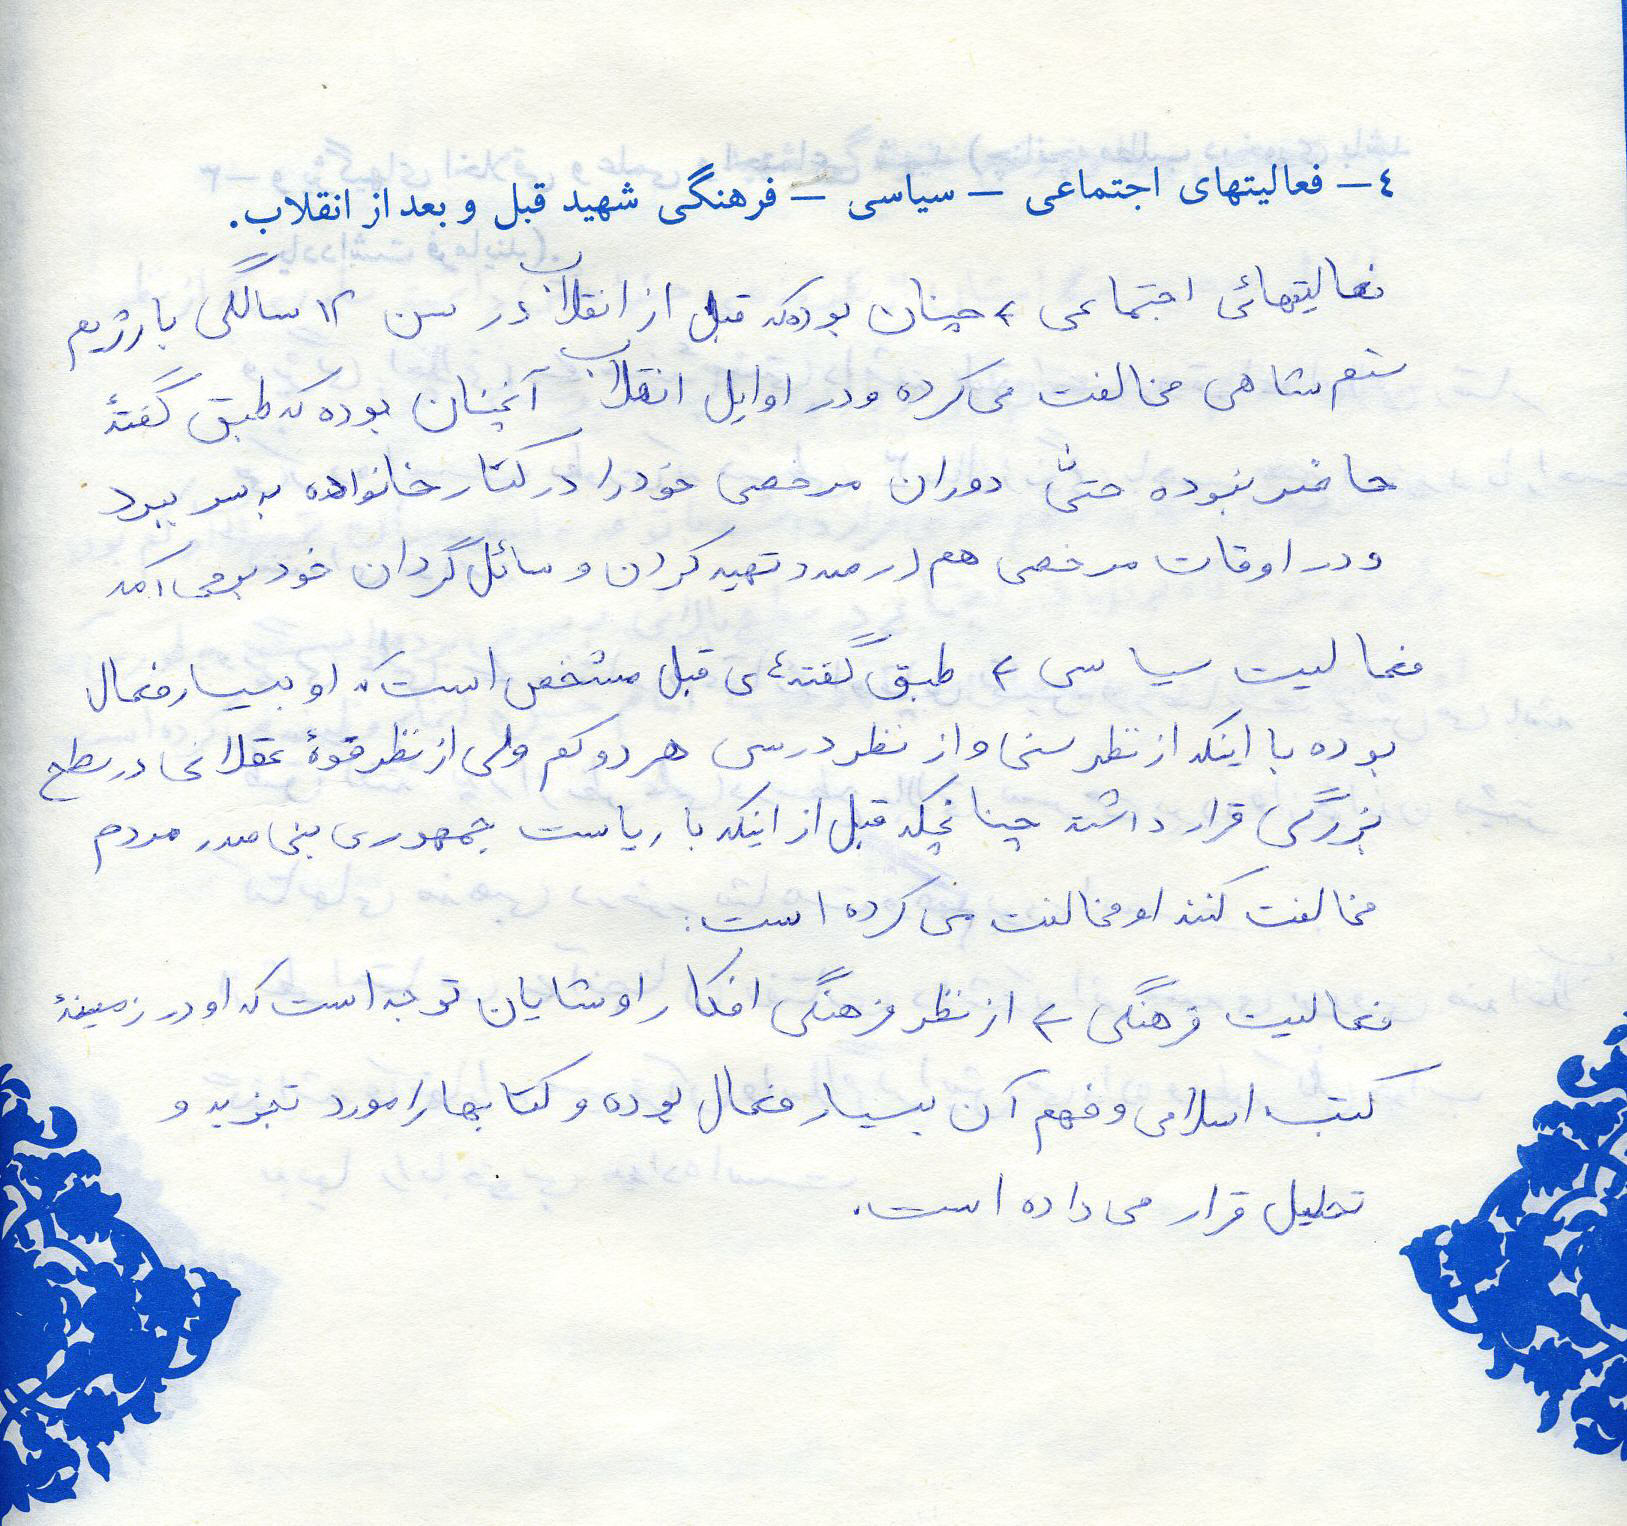 ٤ – فعالیتهای اجتماعی – سیاسی – فرهنگی شهید قبل و بعد از انقلاب.
فعالیتهائی اجتماعی ← چنان بوده که قبل از انقلاب در سن ۱۲ سالگی با رژیم
ستم شاهی مخالفت می کرده و در اوایل انقلاب آنچنان بوده که طبق گفتهٔ
حاضر نبوده حتیّ دوران مرخصی خود را در کنار خانواده به سر ببرد
و در اوقات مرخصی هم در صدد تهیه کردن وسائل گردان خود بر می آمد
فعالیت سیاسی ← طبق گفتهٔ ی قبل مشخص است که او بسیار فعال
بوده با اینکه از نظر سنی و از نظر درسی هر دو کم ولی از نظر قوهٔ عقلانی در سطح
بزرگی قرار داشته چنانچکه قبل از اینکه با ریاست جمهوری بنی صدر مردم
مخالفت کنند او مخالفت می کرده است:
فعالیت فرهنگی ← از نظر فرهنگی افکار او شایان توجه است که او در زمینهٔ
کتب اسلامی و فهم آن بسیار فعال بوده و کتابها را مورد تجزیه و
تحلیل قرار می داده است.